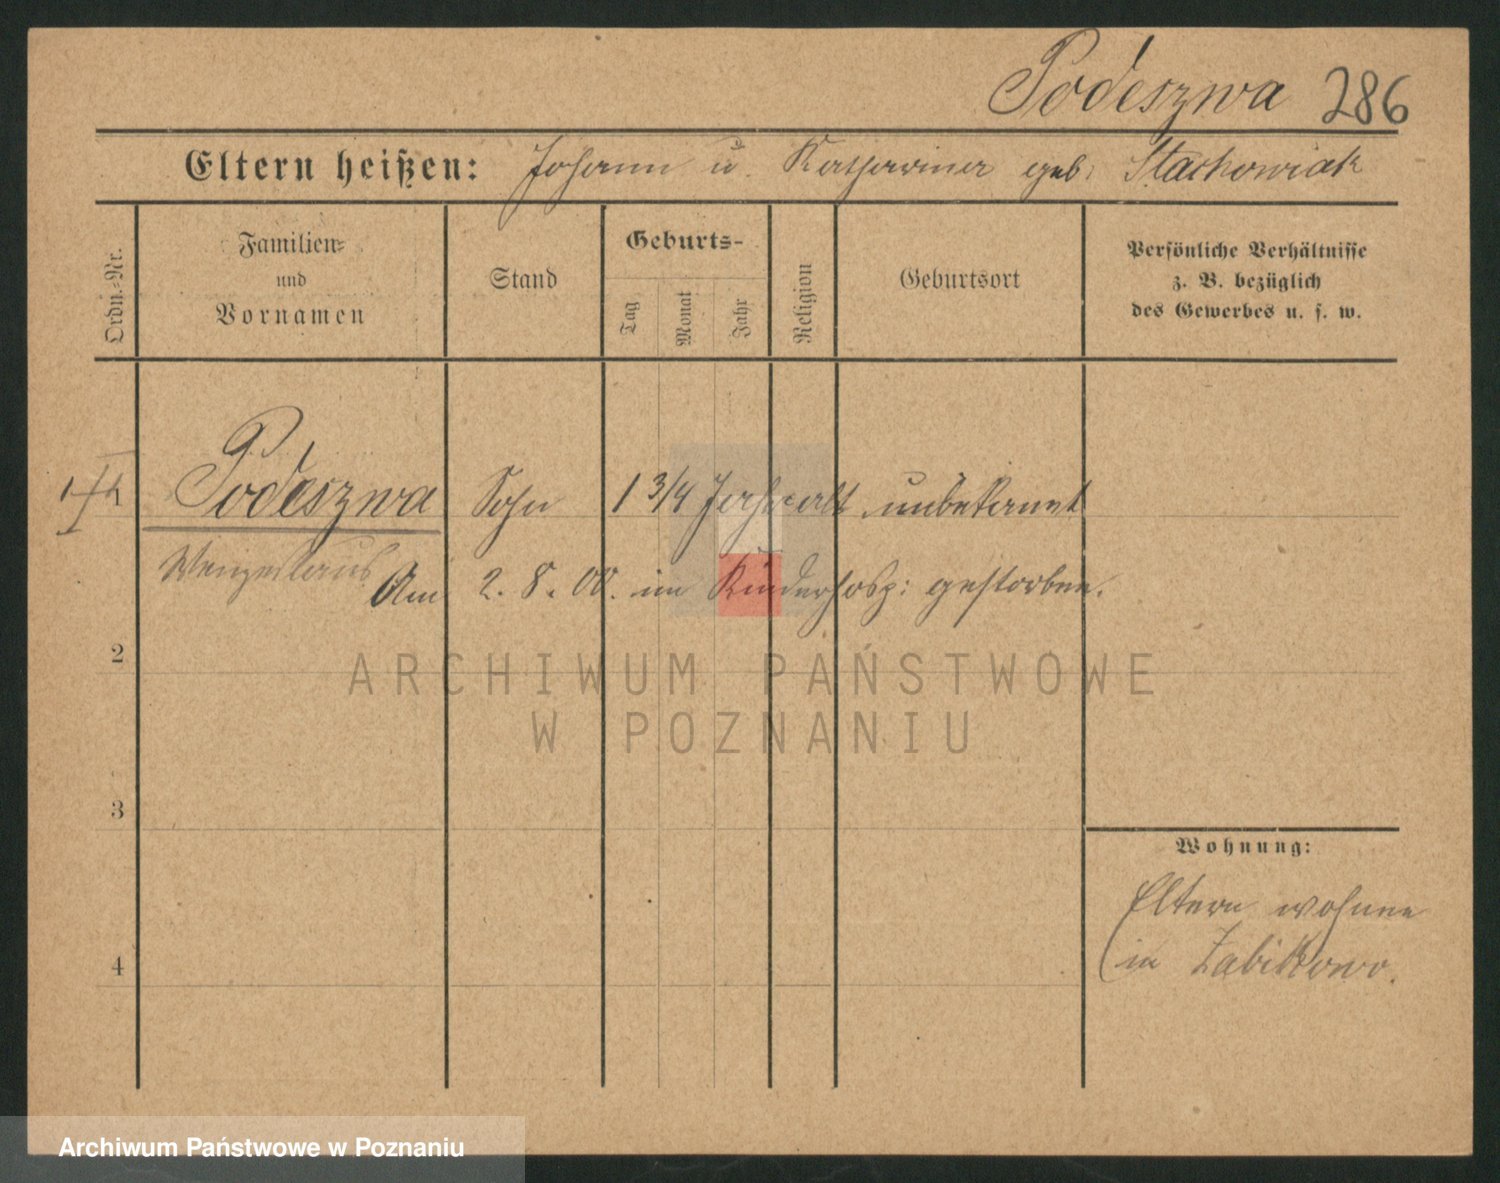 Podeszwa 286
Eltern heißen: Johann u. Katharina geb. Stachowiak
Ordn.-Nr.
Familien-
und
Vornamen
Stand
Geburts-
Tag
Monat
Jahr
Religion
Geburtsort
Persönliche Verhältnisse
z. B. bezüglich
des Gewerbes u. s. w.
1 Podeszwa Sohn 1 3/4 Jahr alt unbekannt
Wenzeslaus Am 2. 8. 00. im Kinderhosp: gestorben.
2
3
4
Wohnung:
Eltern wohnen
in Zabikowo.
ARCHIWUM PAŃSTWOWE
W POZNANIU
Archiwum Państwowe w Poznaniu